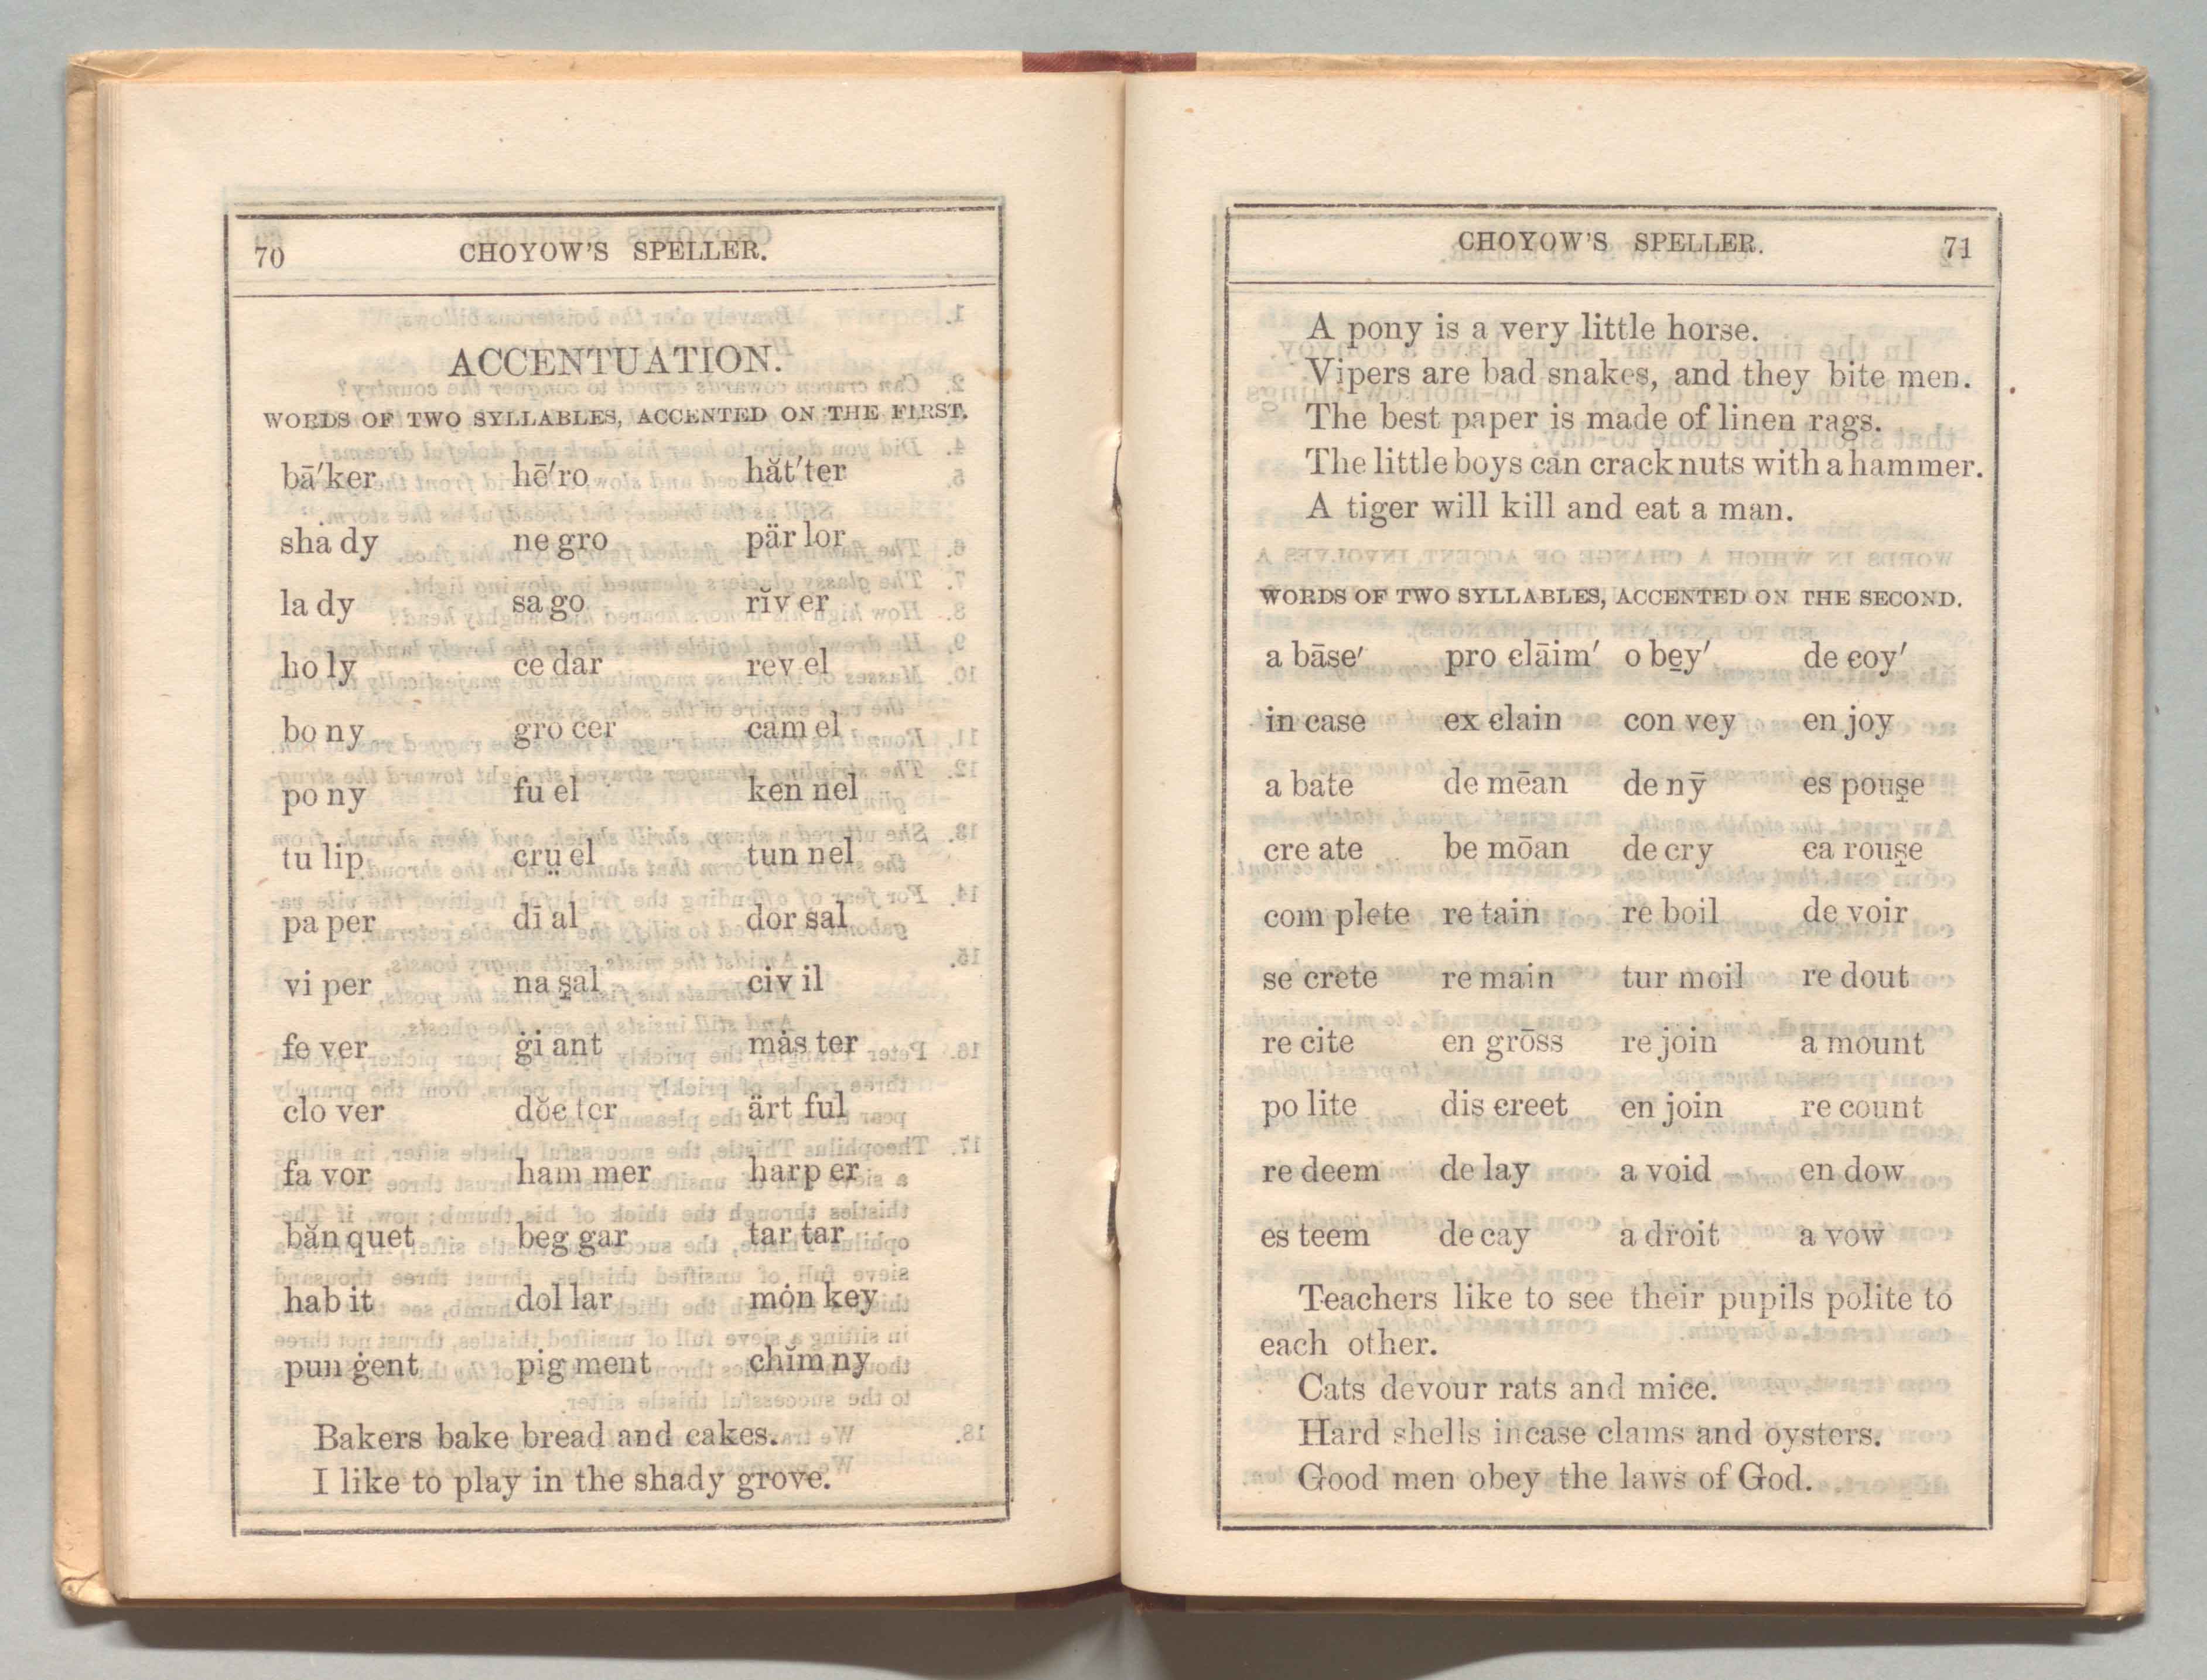 70 CHOYOW'S SPELLER.
ACCENTUATION.
WORDS OF TWO SYLLABLES, ACCENTED ON THE FIRST.
bā′ker hē′ro hăt′ter
sha dy ne gro pär lor
la dy sa go rĭv er
ho ly ce dar rev el
bo ny gro cer cam el
po ny fu el ken nel
tu lip crṳ el tun nel
pa per dī al dor sal
vi per na s̱al civ il
fe ver ġi ant mȧs ter
clo ver dŏc tor ärt ful
fa vor ham mer harp er
băn quet beg gar tar tar
hab it dol lar mȯn key
pun ġent pig ment chĭm ny
Bakers bake bread and cakes.
I like to play in the shady grove.
CHOYOW'S SPELLER. 71
A pony is a very little horse.
Vipers are bad snakes, and they bite men.
The best paper is made of linen rags.
The little boys can crack nuts with a hammer.
A tiger will kill and eat a man.
WORDS OF TWO SYLLABLES, ACCENTED ON THE SECOND.
a bāse′ pro clāim′ o be̱y′ de coy′
in case ex clain con vey en joy
a bate de mēan de nȳ es pous̱e
cre ate be mōan de cry ca rous̱e
com plete re tain re boil de voir
se crete re main tur moil re dout
re cite en grōss re join a mount
po lite dis creet en join re count
re deem de lay a void en dow
es teem de cay a droit a vow
Teachers like to see their pupils polite to
each other.
Cats devour rats and mice.
Hard shells incase clams and oysters.
Good men obey the laws of God.